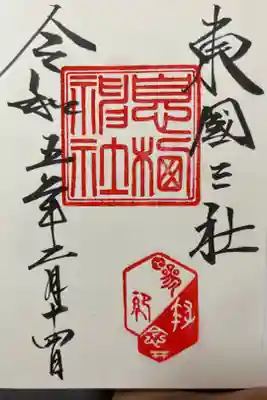 東國三社
息栖
神社
令和五年二月十四日
参拝